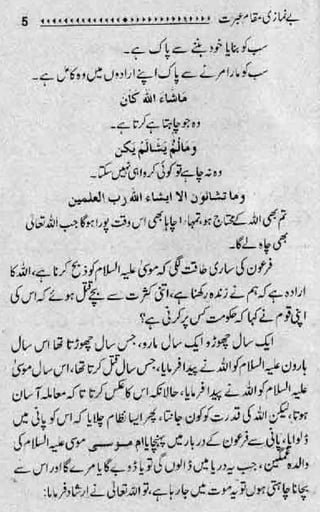 بے نمازی، مقام عبرت 5
سب کو بنایا خود بننے سے پاک ہے۔
سب کو مارا مرنے سے پاک اپنے ارادوں میں وہ کامل ہے۔
ماشاء اللہ کان
وہ جو چاہتا ہے کرتا ہے۔
ومالم یشالم یکن
وہ نہ چاہے تو کوئی کروا ہی نہیں سکتا۔
وما تشائون الا ایشاء اللہ رب العلمین
تم بھی اللہ کے محتاج ہو، تمہارا چاہا بھی اس وقت پورا ہو گا جب اللہ تعالیٰ
بھی چاہ لے گا۔
فرعون کی ساری طاقت لگی کہ موسیٰ علیہ السلام کو ذبح کرنا ہے، اللہ کا
ارادہ ہے کہ ہم نے زندہ رکھنا ہے، اتنی کثرت سے بچے قتل ہوئے کہ اس کی
اپنی قوم نے کہا کہ حکومت کس پر کرنی ہے؟
ایک سال چھوڑو ایک سال مارو، جس سال چھوڑتا تھا اس سال
ہارون علیہ السلام کو اللہ نے پیدا فرمایا، جس سال قتل کرتا تھا، اس سال موسیٰ
علیہ السلام کو اللہ نے پیدا فرمایا، حالانکہ اس کا عکس کرتا تا کہ معاملہ آسان
ہوتا، لیکن اللہ کی قدرت کو کون جانتا، پھر ایسا نظام چلایا کہ اس کو پانی میں
ڈلوایا، پانی سے فرعون کے دربار میں پہنچایا ام موسی موسیٰ علیہ السلام کی
والدہ غمگین، جب یہ دریا میں ڈالوں گی تو یا ڈوبے گا یا مرے گا اور اس سے
بچانا چاہتی ہوں تو یہ موت میں جا رہا ہے، تو اللہ تعالیٰ نے ارشاد فرمایا: